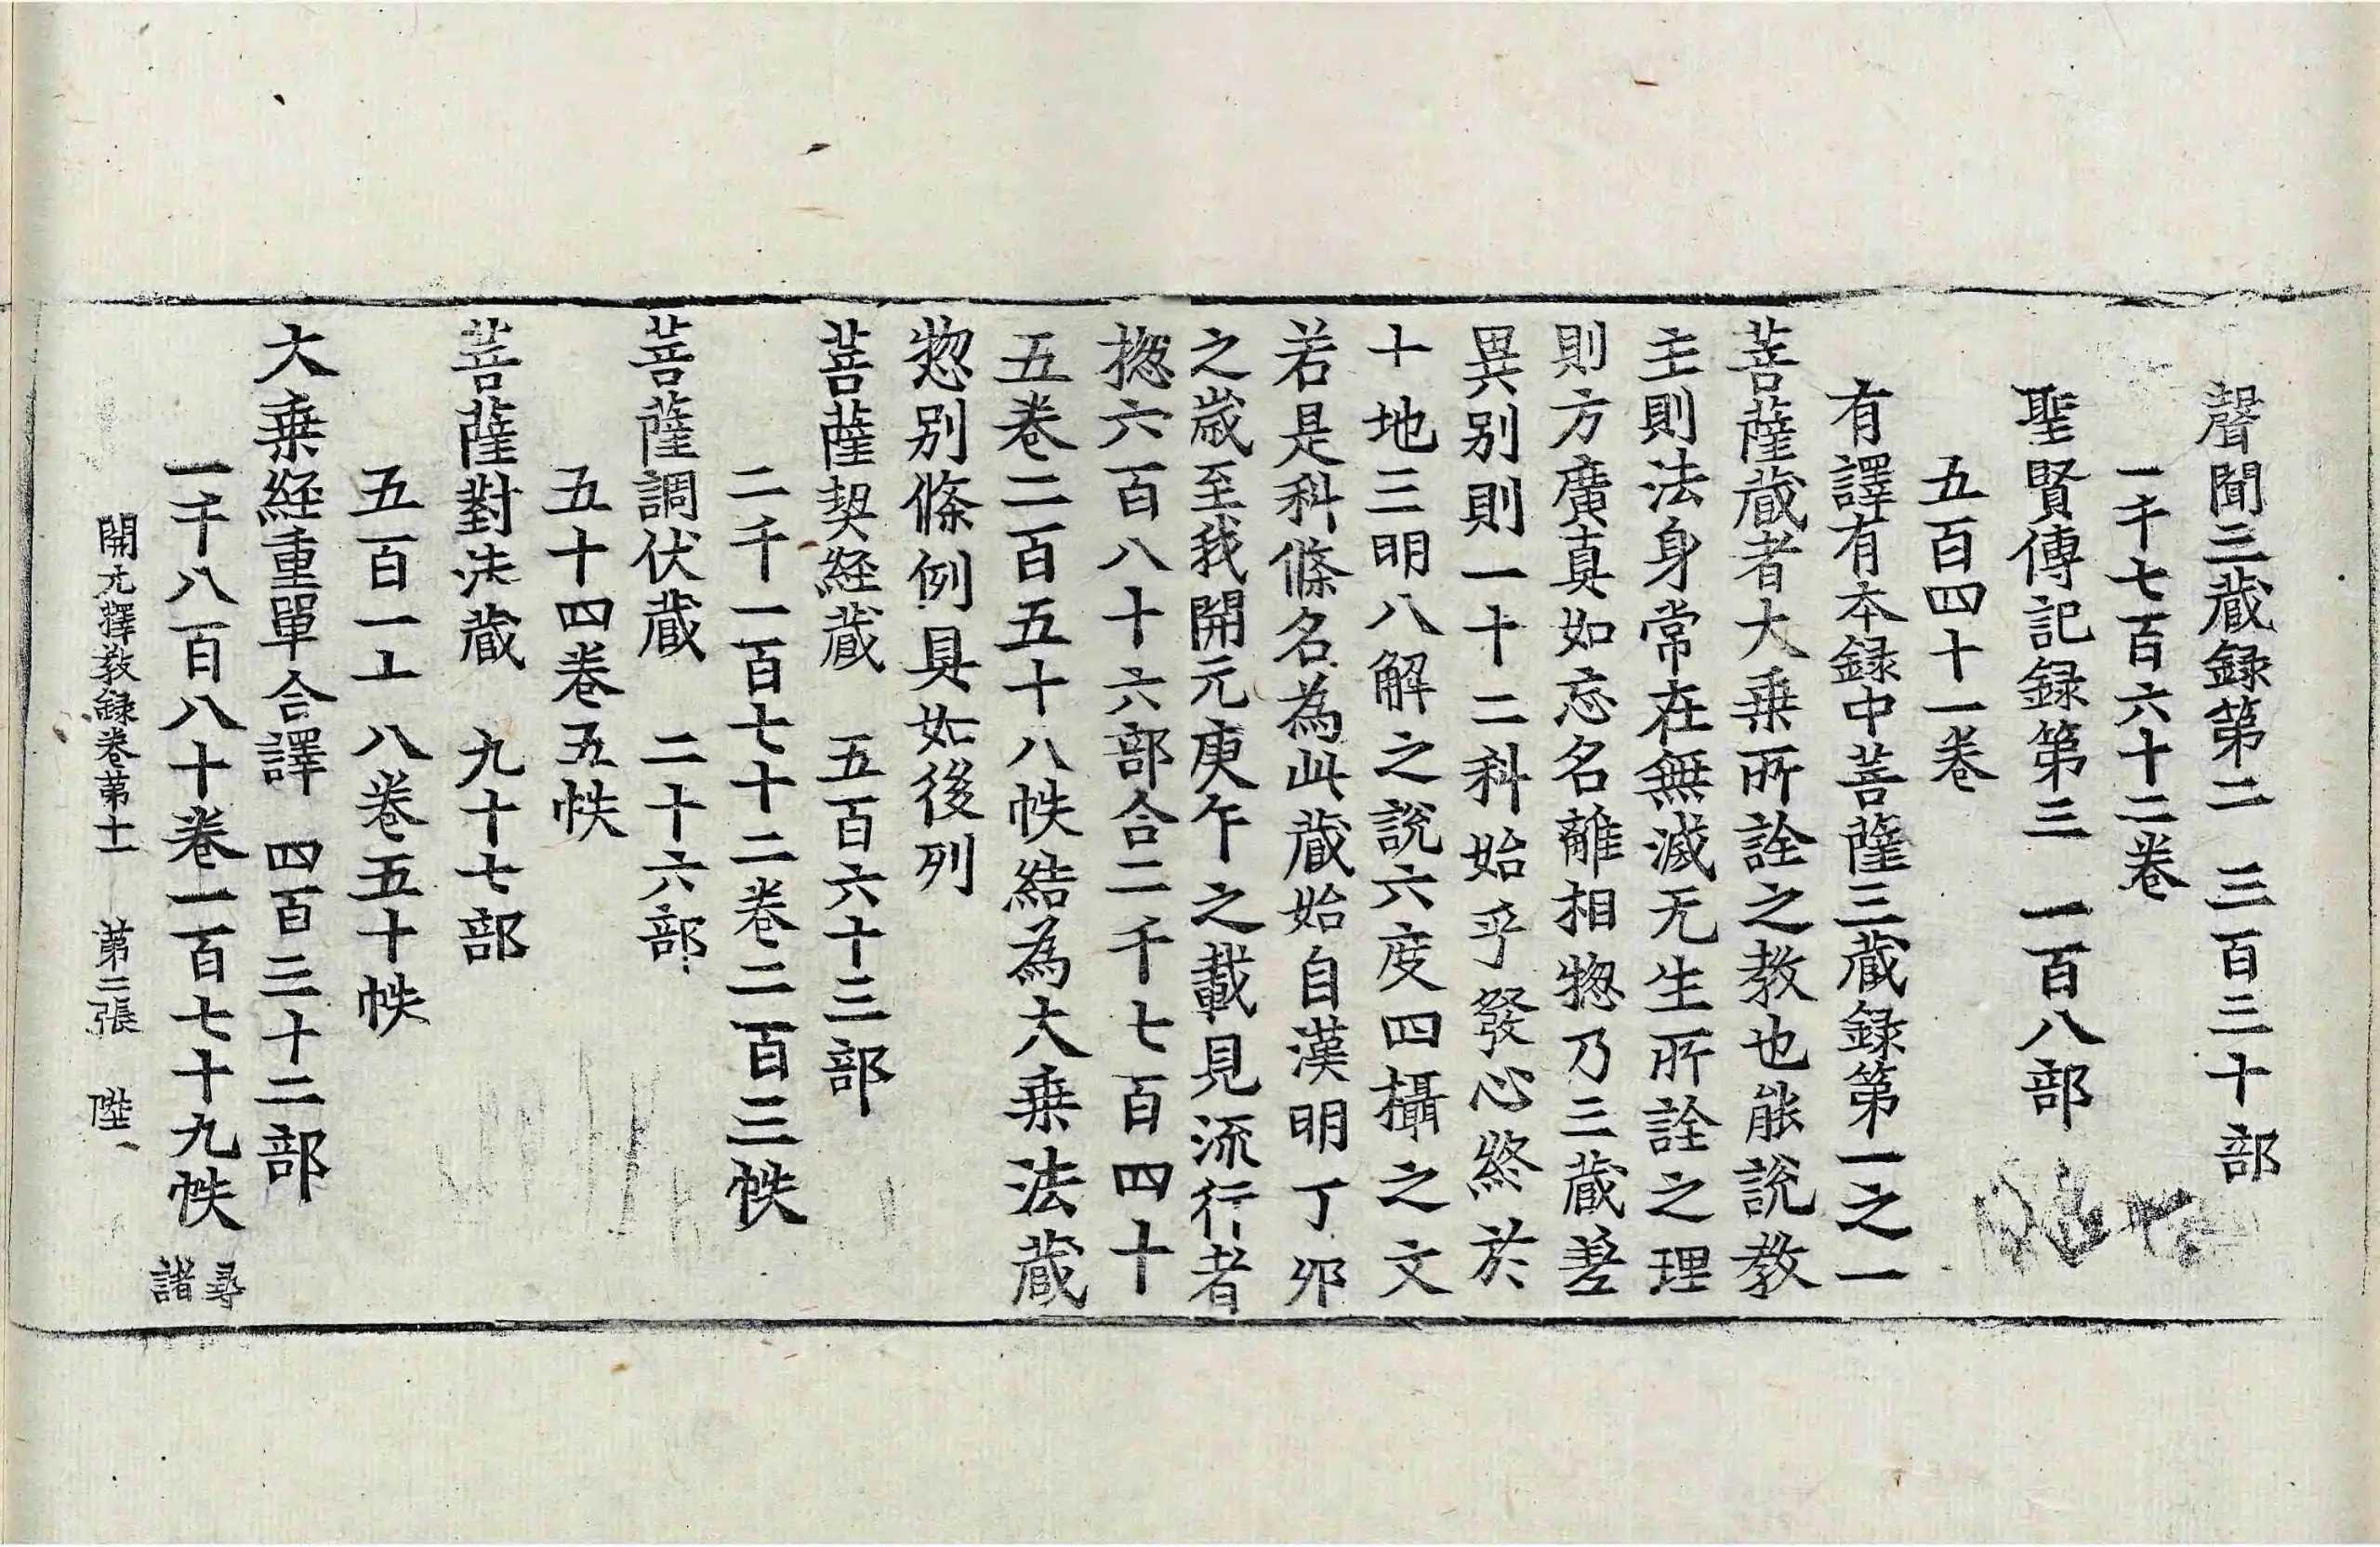 聲聞三藏録第二　三百三十部
一千七百六十二卷
聖賢傳記録第三　一百八部
五百四十一卷
有譯有本録中菩薩三藏録第一之一
菩薩藏者大乗所詮之教也能說教
主則法身常在無滅无生所詮之理
則方廣真如忘名離相惣乃三藏差
異別則一十二科始乎發心終於
十地三明八解之說六度四攝之文
若是科條名為此藏始自漢明丁夘
之歲至我開元庚午之載見流行者
揔六百八十六部合二千七百四十
五卷二百五十八帙結為大乗法藏
惣別條例具如後列
菩薩契經藏　五百六十三部
二千一百七十二卷二百三帙
菩薩調伏藏　二十六部
五十四卷五帙
菩薩對法藏　九十七部
五百一上　八卷五十帙
大乗経重單合譯　四百三十二部
一千八百八十卷一百七十九帙　尋諸
開元釋教録卷苐十一　苐二張　陛